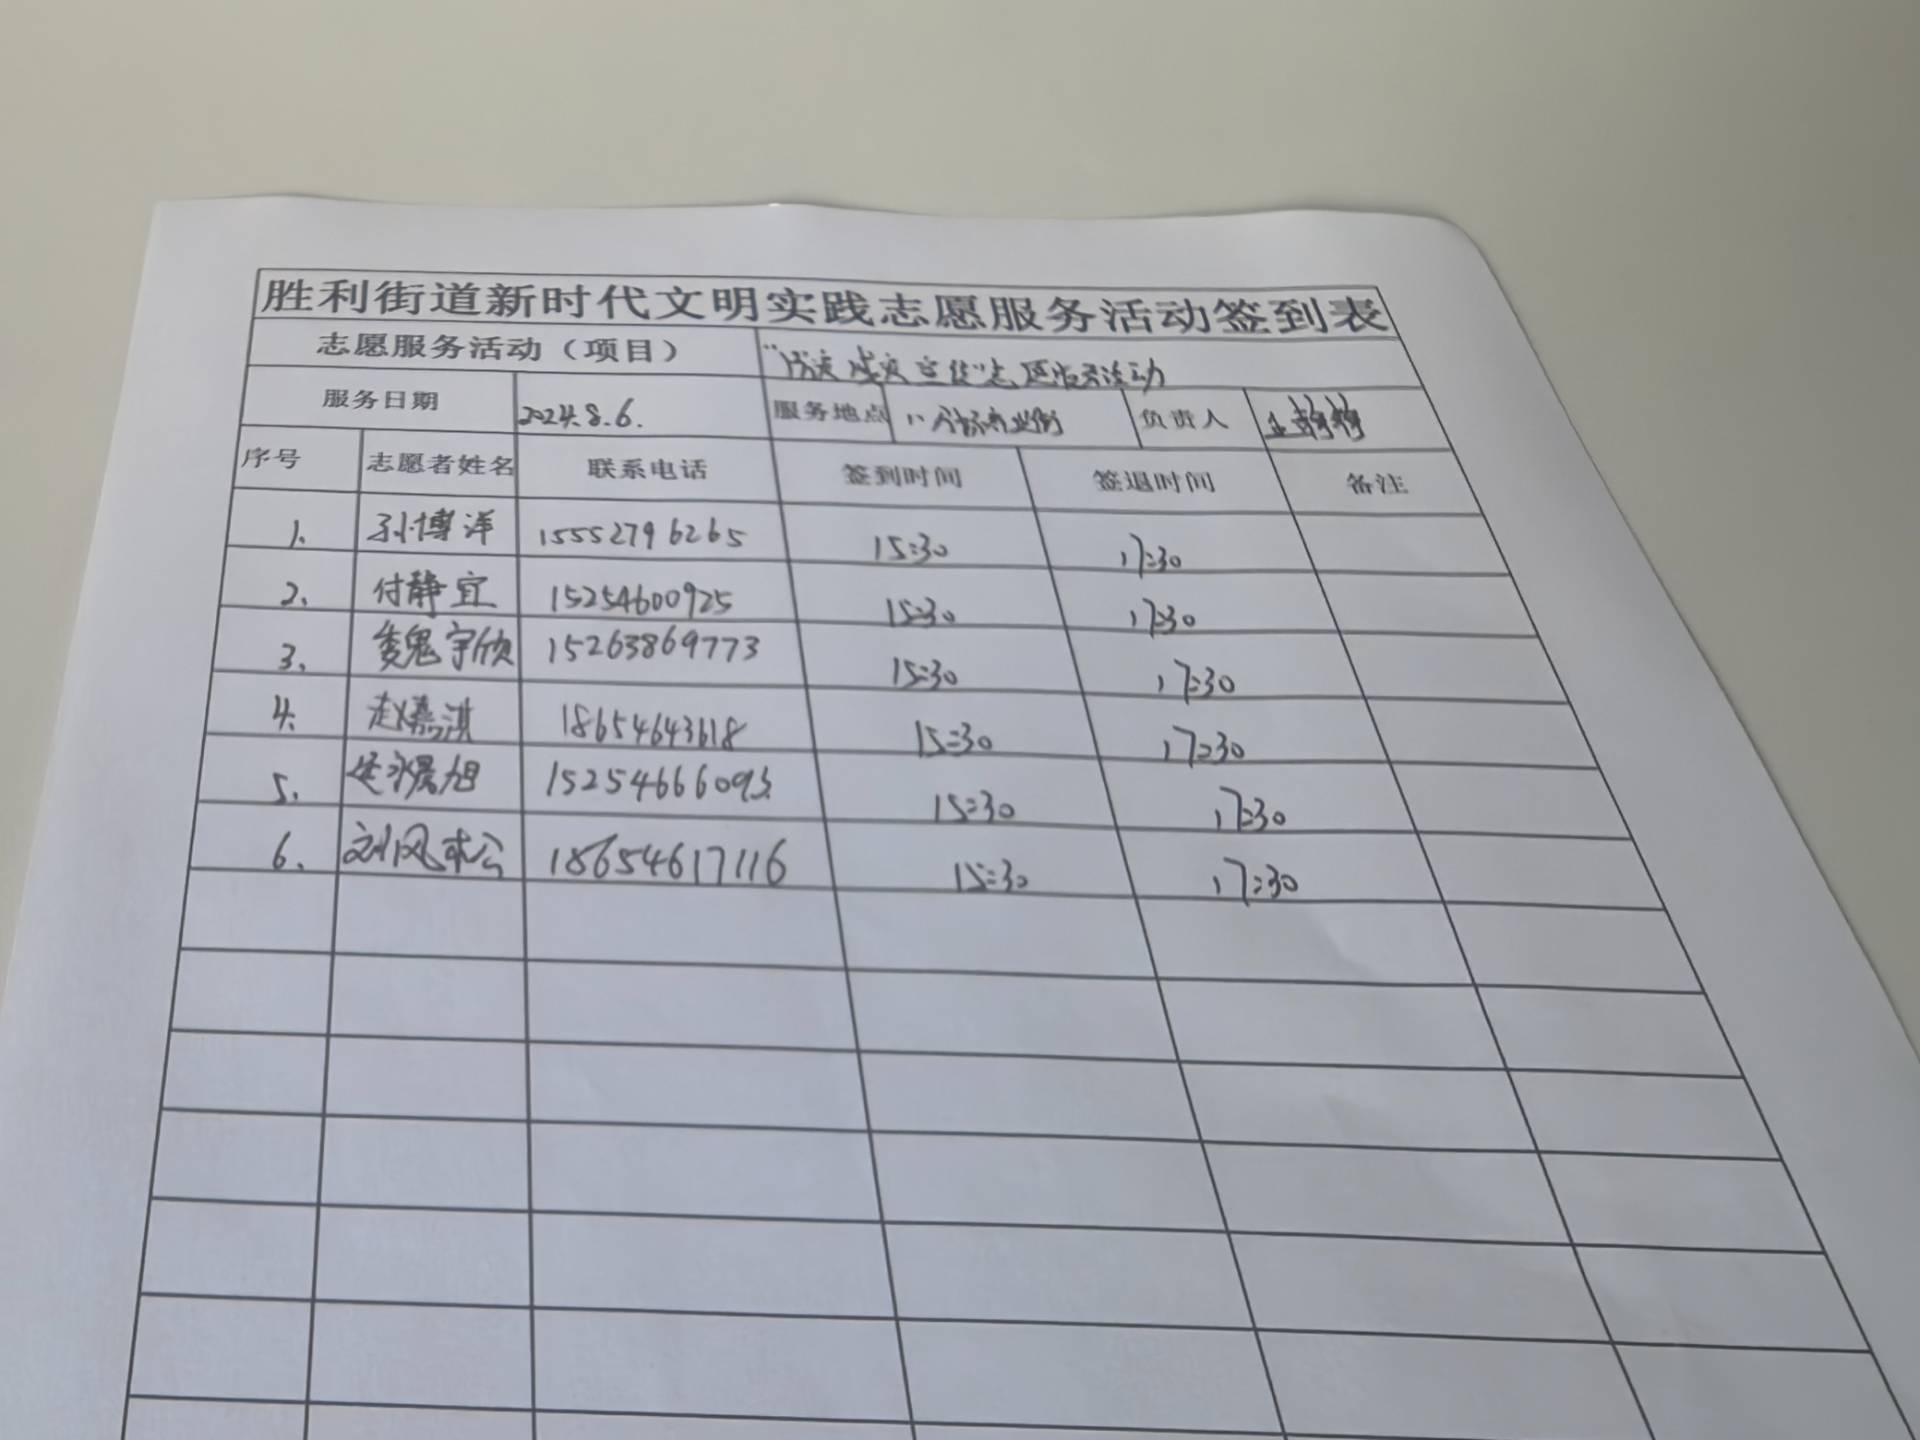 胜利街道新时代文明实践志愿服务活动签到表
志愿服务活动（项目）
服务日期 2024.8.6. 服务地点 负责人
序号 志愿者姓名 联系电话 签到时间 签退时间 备注
1. 孙博洋 15552796265 15:30 17:30
2. 付静宜 15254600925 15:30 17:30
3. 魏宇欣 15263869773 15:30 17:30
4. 赵嘉淇 18654643618 15:30 17:30
5. 15254666093 15:30 17:30
6. 18654617116 15:30 17:30